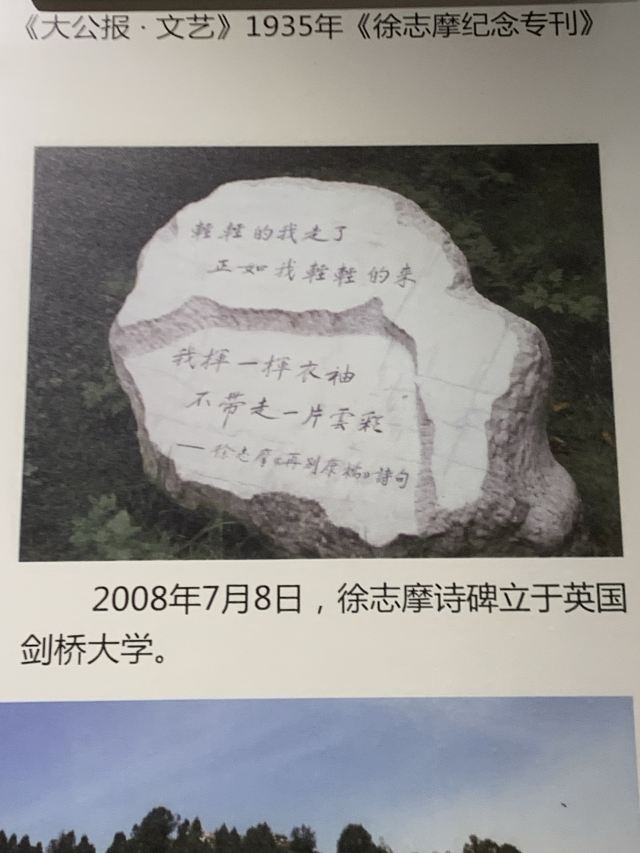 《大公报·文艺》1935年《徐志摩纪念专刊》
輕輕的我走了
正如我輕輕的来
我揮一揮衣袖
不带走一片雲彩
——徐志摩《再别康橋》詩句
2008年7月8日，徐志摩诗碑立于英国
剑桥大学。